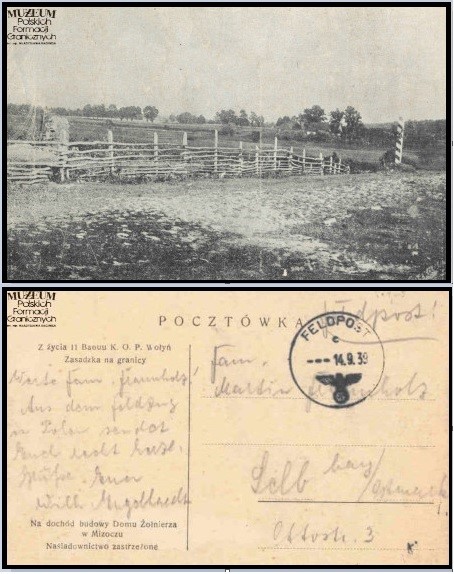 MUZEUM
Polskich
Formacji
Granicznych
MUZEUM
Polskich
Formacji
Granicznych
POCZTÓWKA
Feldpost!
FELDPOST
c
--- 14.9.39
Z życia 11 Baonu K. O. P. Wołyń
Zasadzka na granicy
Fam.
Martin
Werte Fam.
Aus dem Feldzug
in Polen sendet
Euch recht herzl.
Grüße Euer
Willi
Selb bay/
Ottostr. 3
Na dochód budowy Domu Żołnierza
w Mizoczu
Naśladownictwo zastrzeżone